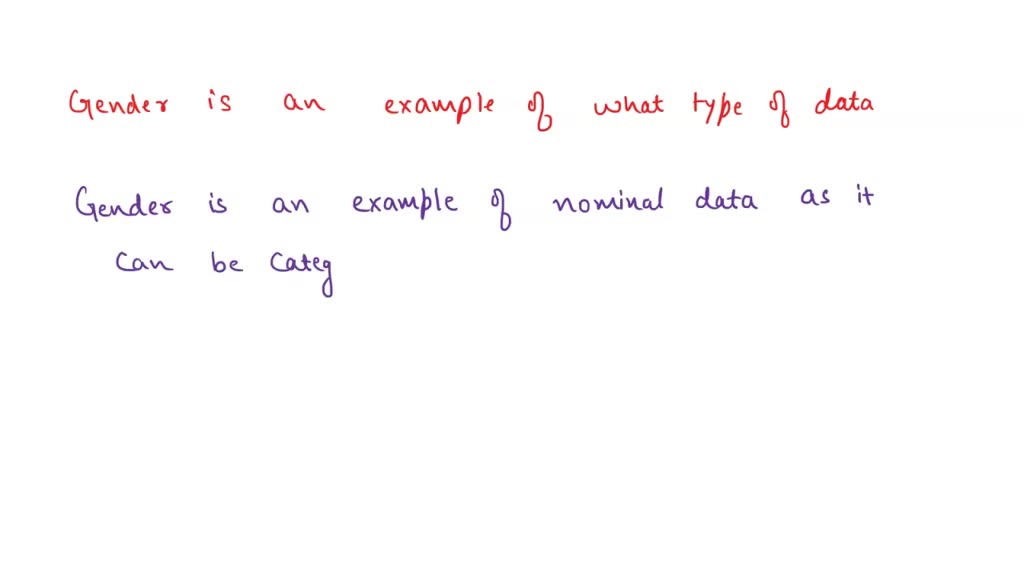 Gender is an example of what type of data
Gender is an example of nominal data as it
can be categ